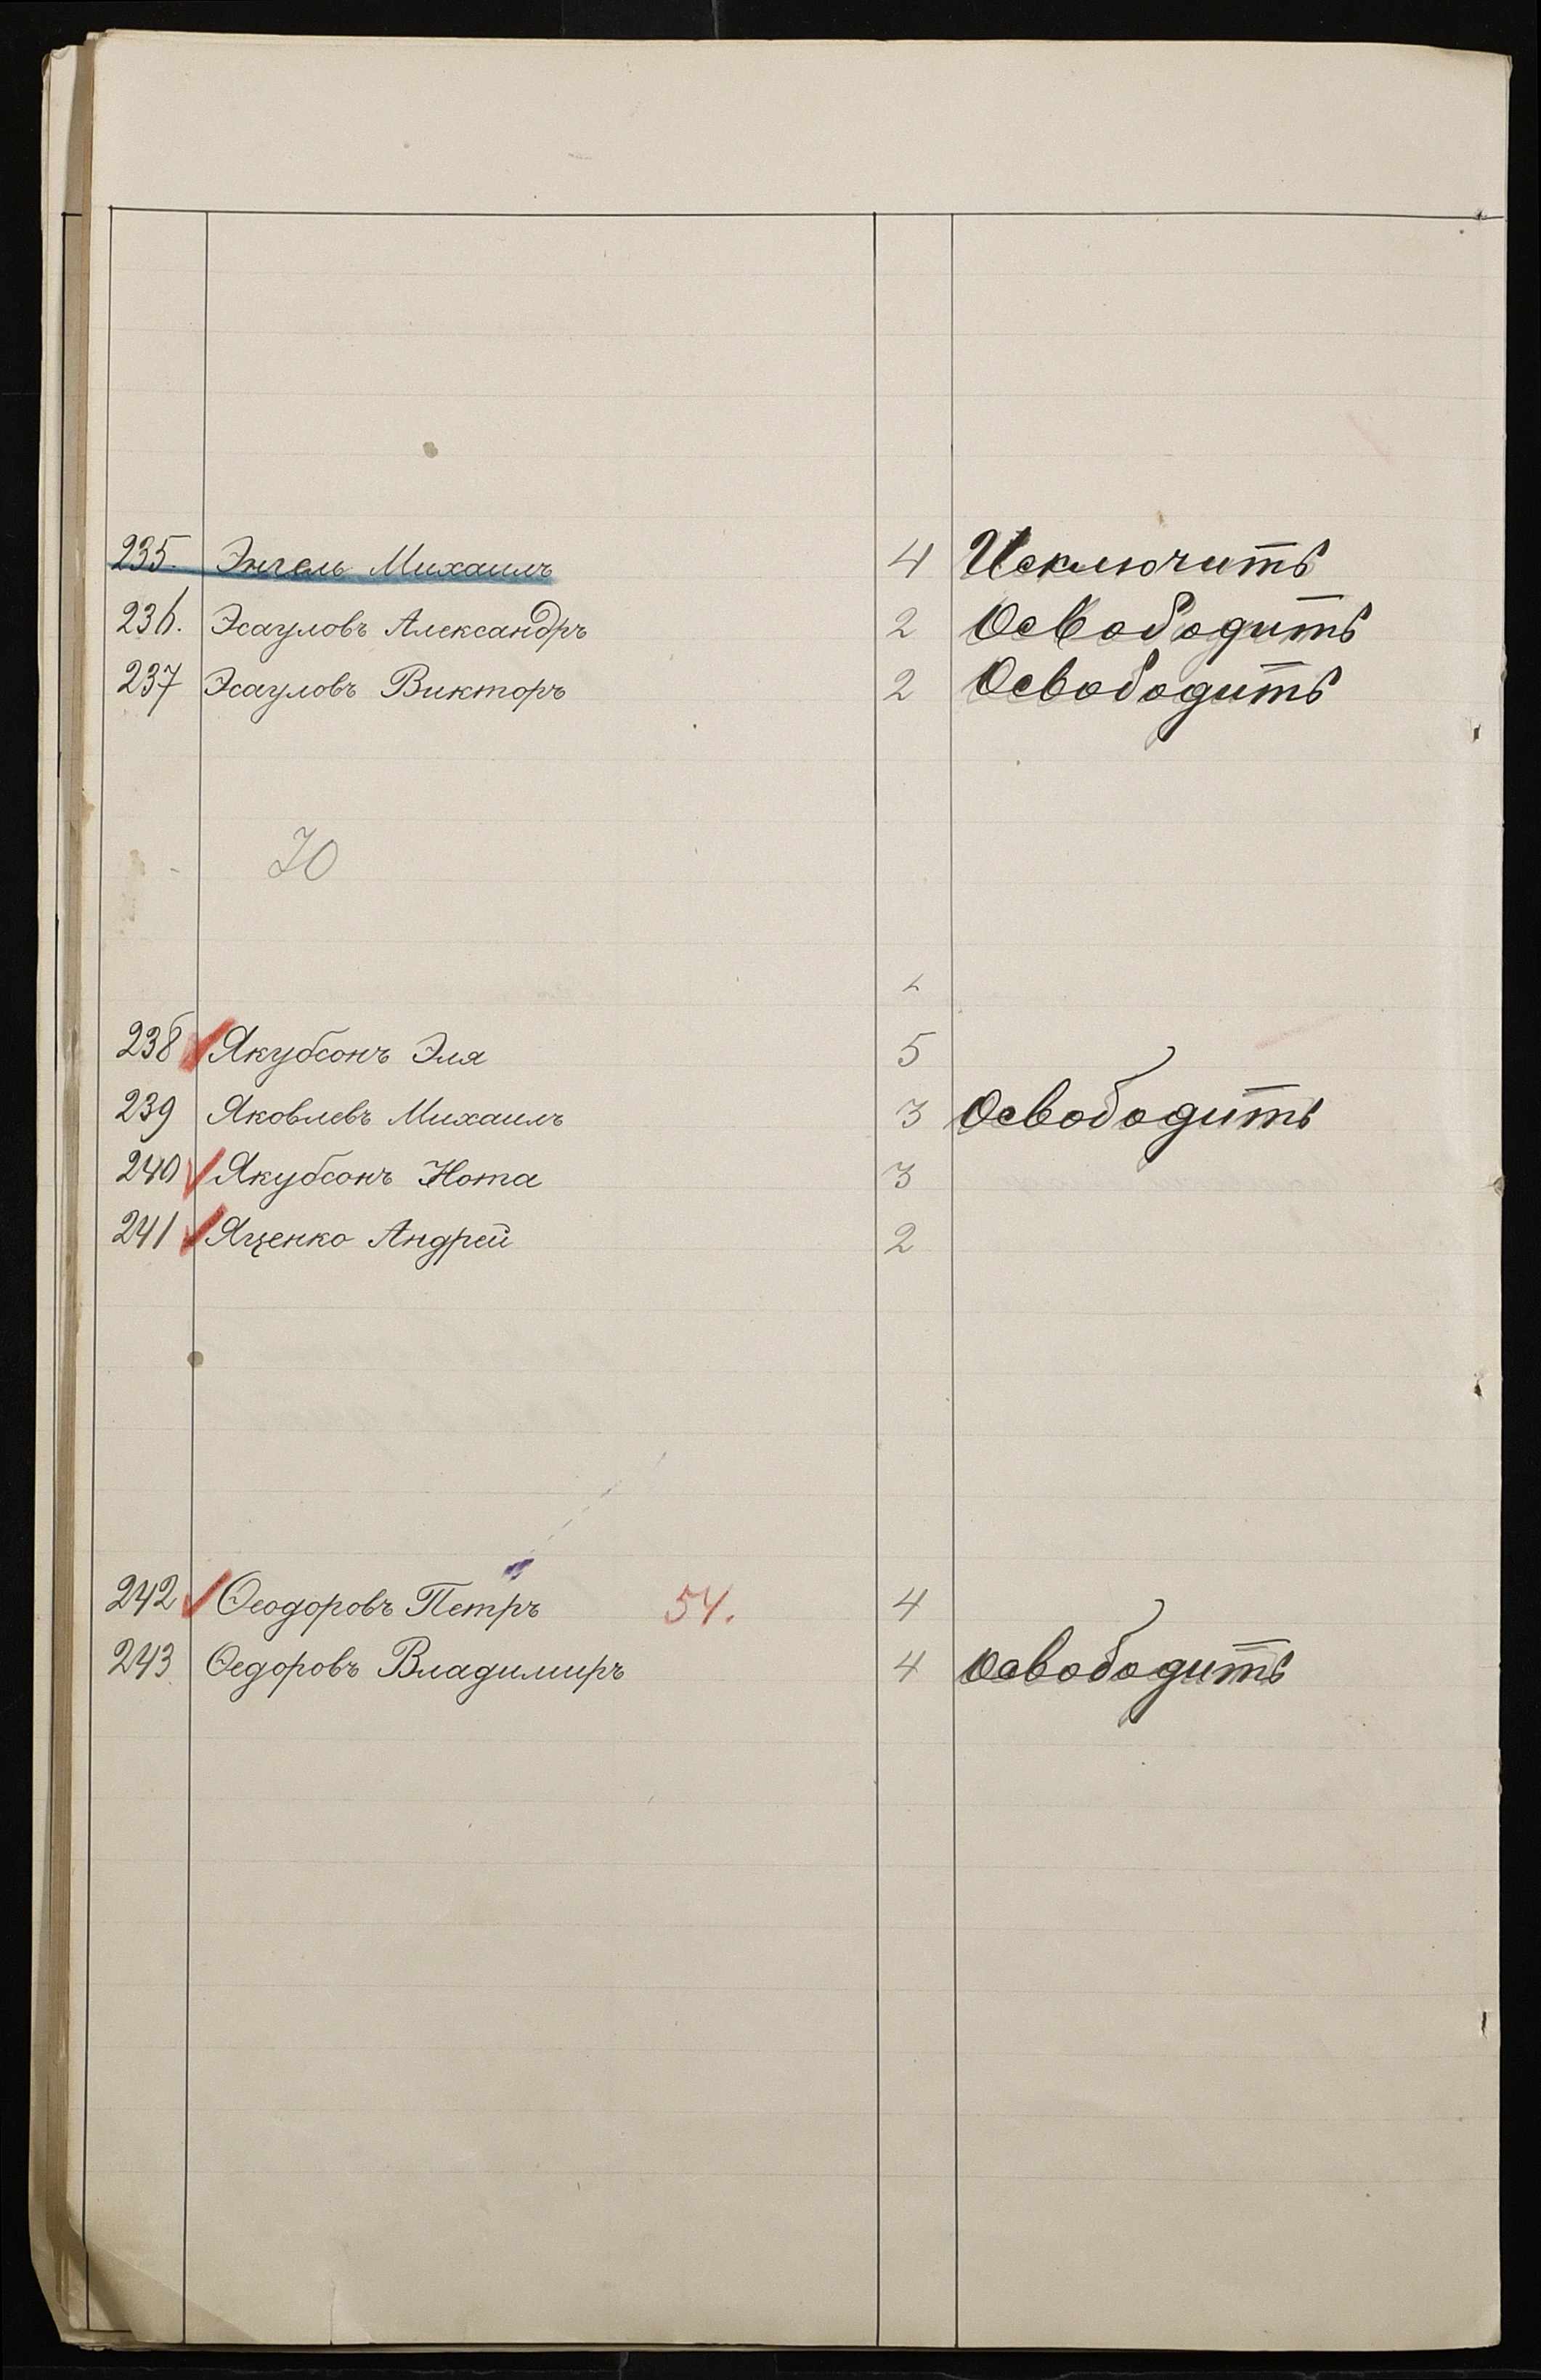 235. Энгель Михаилъ 4 Исключить
236. Эсауловъ Александръ 2 Освободить
237 Эсауловъ Викторъ 2 Освободить
70
238 Якубсонъ Эля 5
239 Яковлевъ Михаилъ 3 Освободить
240 Якубсонъ Нота 3
241 Яценко Андрей 2
242 Ѳеодоровъ Петръ 54. 4
243 Ѳедоровъ Владимиръ 4 Освободить